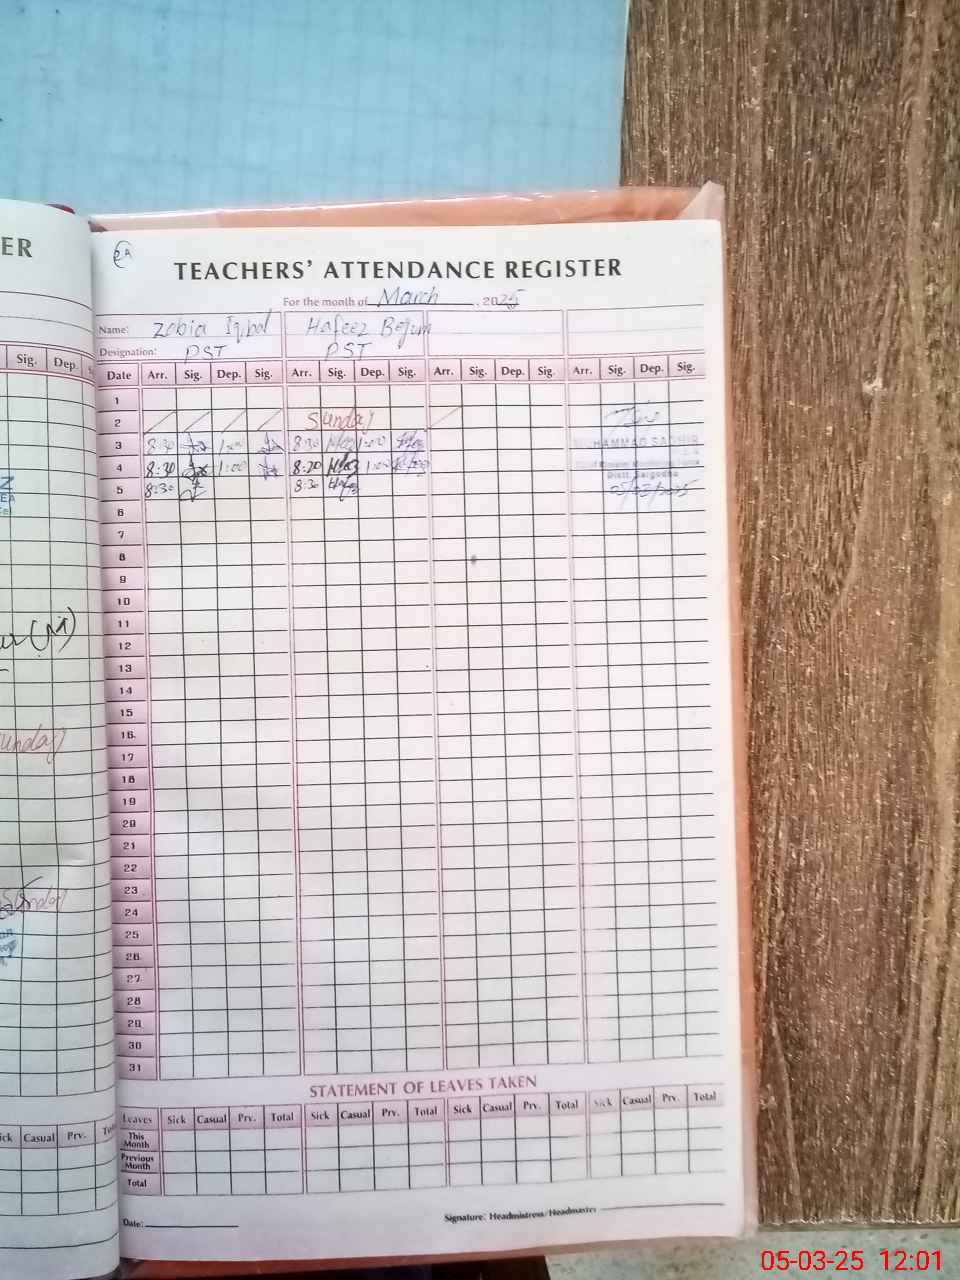 ER
TEACHERS' ATTENDANCE REGISTER
For the month of March, 2025
Name: Zobia Iqbal Hafeez Begum
Designation: PST PST
Sig. Dep.
Date Arr. Sig. Dep. Sig. Arr. Sig. Dep. Sig. Arr. Sig. Dep. Sig. Arr. Sig. Dep. Sig.
1
2 Sunday
3 8:30 1:00 8:30 1:00
4 8:30 1:00 8:20 1:00
5 8:30 8:30
MUHAMMAD
Distt. Sargodha
05/03/2025
6
7
8
9
10
11
12
13
14
15
16
17
18
19
20
21
22
23
24
25
26
27
28
29
30
31
Sunday
Sunday
STATEMENT OF LEAVES TAKEN
Leaves Sick Casual Prv. Total Sick Casual Prv. Total Sick Casual Prv. Total Sick Casual Prv. Total
This Month
Previous Month
Total
Casual Prv.
Date:
Signature: Headmistress/Headmaster
05-03-25 12:01